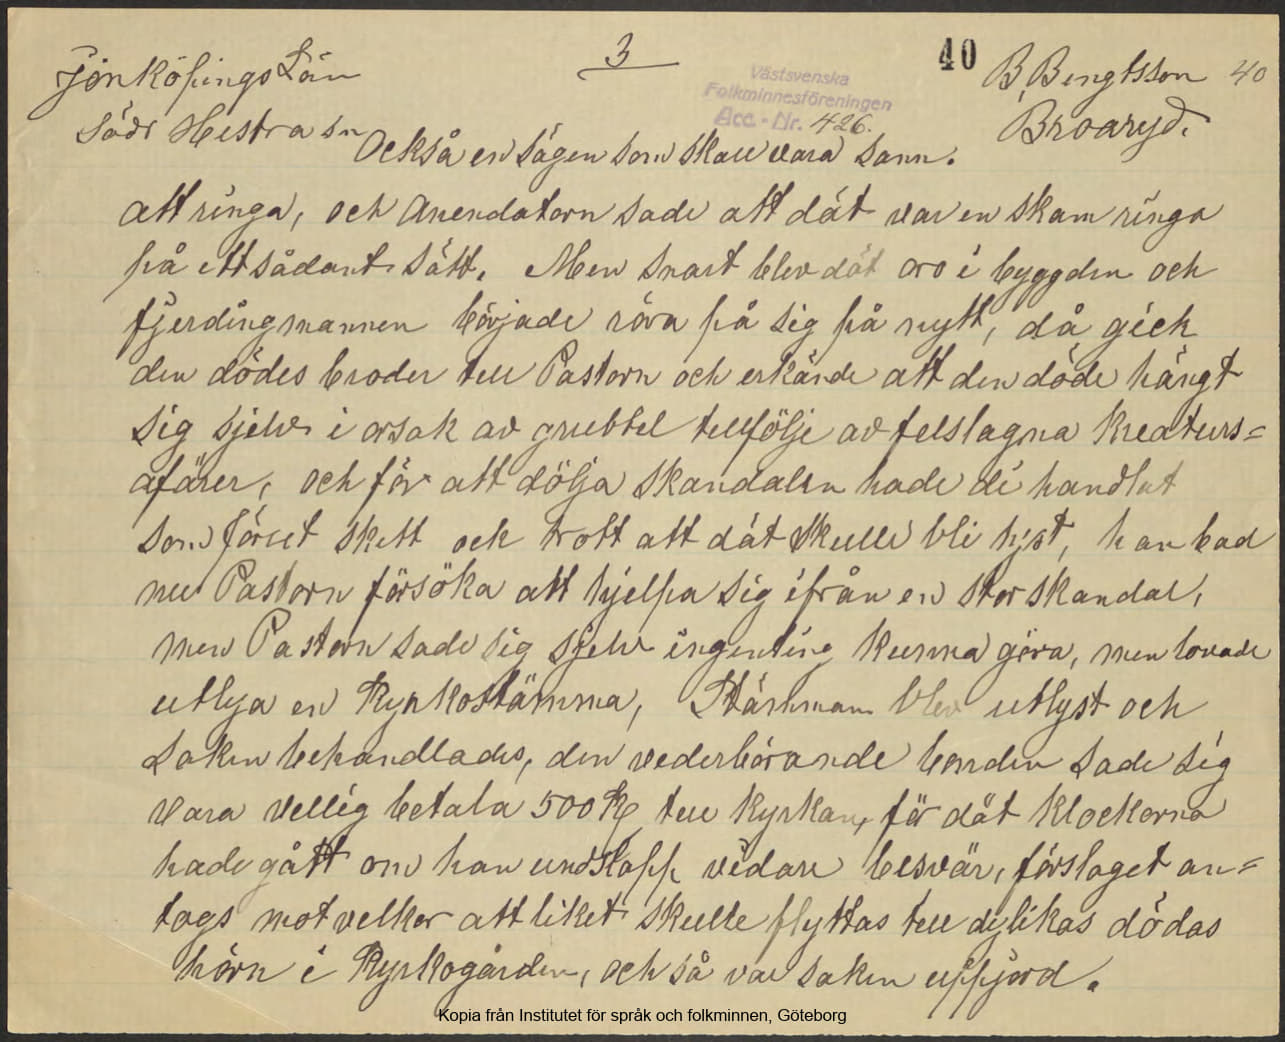 3
40
Jönköpings Län
B. Bengtsson 40
Västsvenska
Folkminnesföreningen
Acc.-Nr. 426.
Södr Hestra sn
Broaryd.
Också en sägen som skall vara sann.
att ringa, och Arendatorn sade att dät var en skam ringa
på ett sådant sätt. Men snart blev dät oro i byggden och
fjerdingmannen började röra på sig på nytt, då gick
den dödes broder till Pastorn och erkände att den döde hängt
sig sjelv i orsak av grubbel tillfölje av felslagna kreaturs=
afärer, och för att dölja skandalen hade di handlat
som förset skett och trott att dät skulle bli tyst, han bad
nu Pastorn försöka att hjelpa sig ifrån en stor skandal,
men Pastorn sade sig sjelv ingenting kunna göra, men lovade
utlysa en Kyrkostämma, Stämman blev utlyst och
Saken behandlades, den vederbörande bonden sade sig
vara villig betala 500 Kr till Kyrkan, för dät klockorna
hade gått om han undslapp vidare besvär, förslaget an=
togs mot velkor att liket skulle flyttas till dylikas dödas
hörn i Kyrkogården, och så var saken uppgjord.
Kopia från Institutet för språk och folkminnen, Göteborg